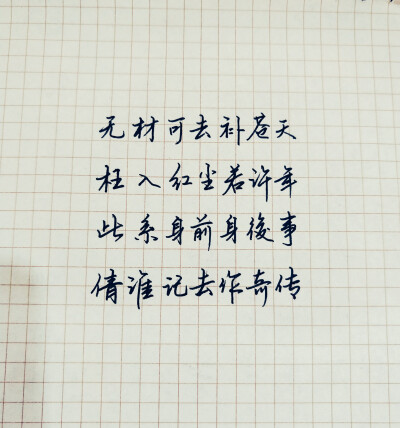 无材可去补苍天
枉入红尘若许年
此系身前身後事
倩谁记去作奇传